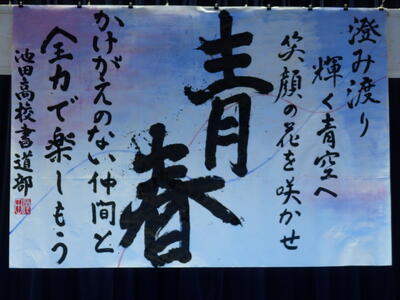 澄み渡り
輝く青空へ
笑顔の花を咲かせ
青春
かけがえのない仲間と
全力で楽しもう
池田高校書道部